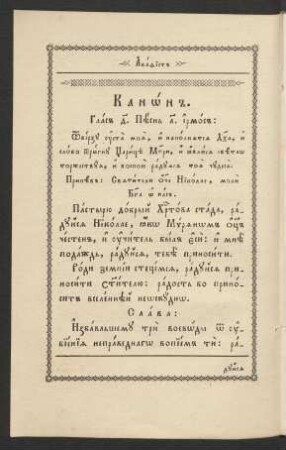 Акаѳїстъ
Канѡнъ.
Гласъ д҃. Пѣснь а҃. і҆рмосъ:
Ѿверзꙋ ѹ҆ста моѧ̀, и҆ наполнѧтсѧ дх҃а, и҆
сло́во ѿры́гнꙋ цари́цѣ мт҃ри, и҆ ꙗ҆влю́сѧ свѣтлѡ
торжествꙋ́ѧ, и҆ воспою̀ ра́дꙋѧсѧ тоѧ̀ чꙋдеса̀.
Припѣвъ: Свѧти́телю ѻ҆́тче Нїко́лае, молѝ
Бг҃а ѡ҆ на́съ.
Па́стырю до́брый хрⷭ҇то́ва ста́да, ра́-
дꙋйсѧ Нїко́лае, ꙗ҆́кѡ Мѵ́рѧнѡмъ ѻ҆ц҃ъ
че́стенъ, и҆ ѹ҆чи́тель бы́лъ є҆сѝ: и҆ мнѣ̀
пода́ждь, ра́дꙋйсѧ, тебѣ̀ приноси́ти.
Ро́ди земні́и стецѣ́мсѧ, ра́дꙋйсѧ при-
носи́ти ст҃и́телю: ра́дость бо прино́-
ситъ вселе́ннѣй неѡскꙋ́днꙋ.
Сла́ва:
И҆зба́вльшемꙋ трѝ воевѡ́ды ѿ ѹ҆-
бїе́нїѧ непра́веднагѡ вопїе́мъ тѝ: ра́-
дꙋйсѧ